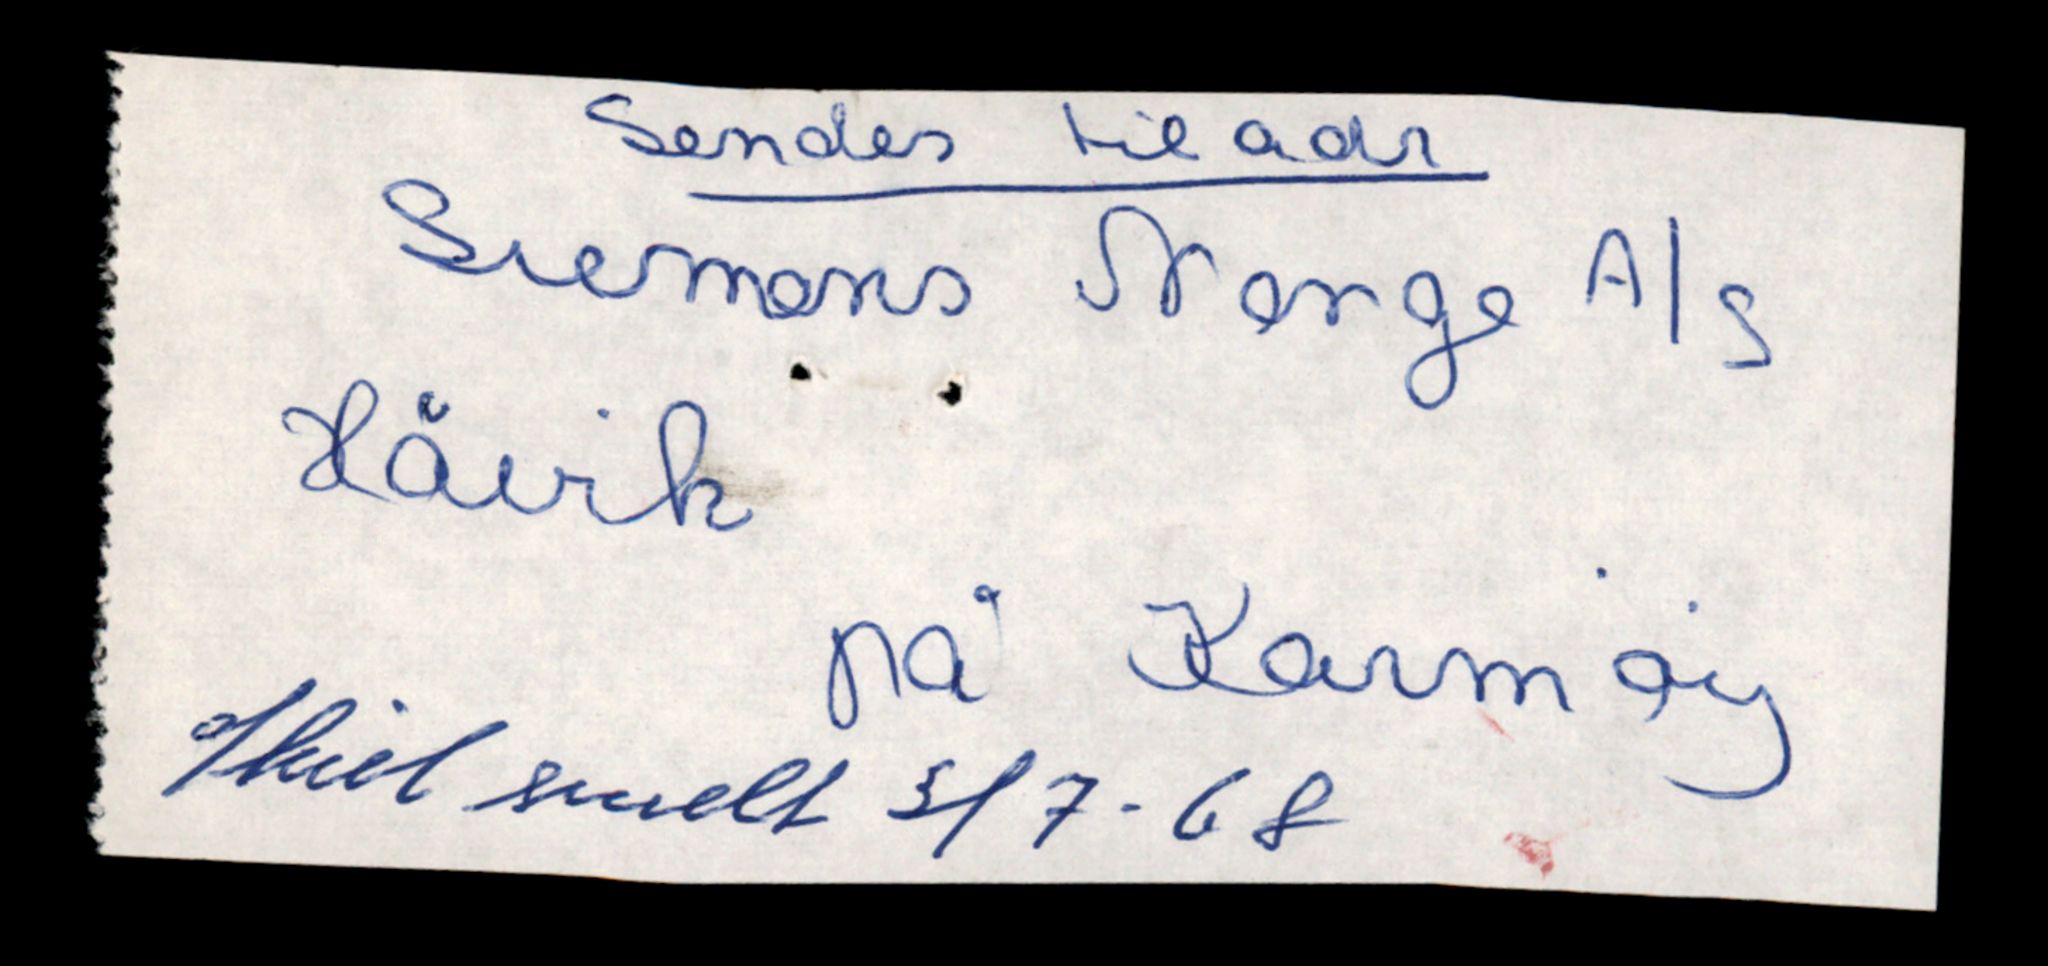 Sendes til adr
Siemens Norge A/S
Håvik
på Karmøy
smelt 3/7-68